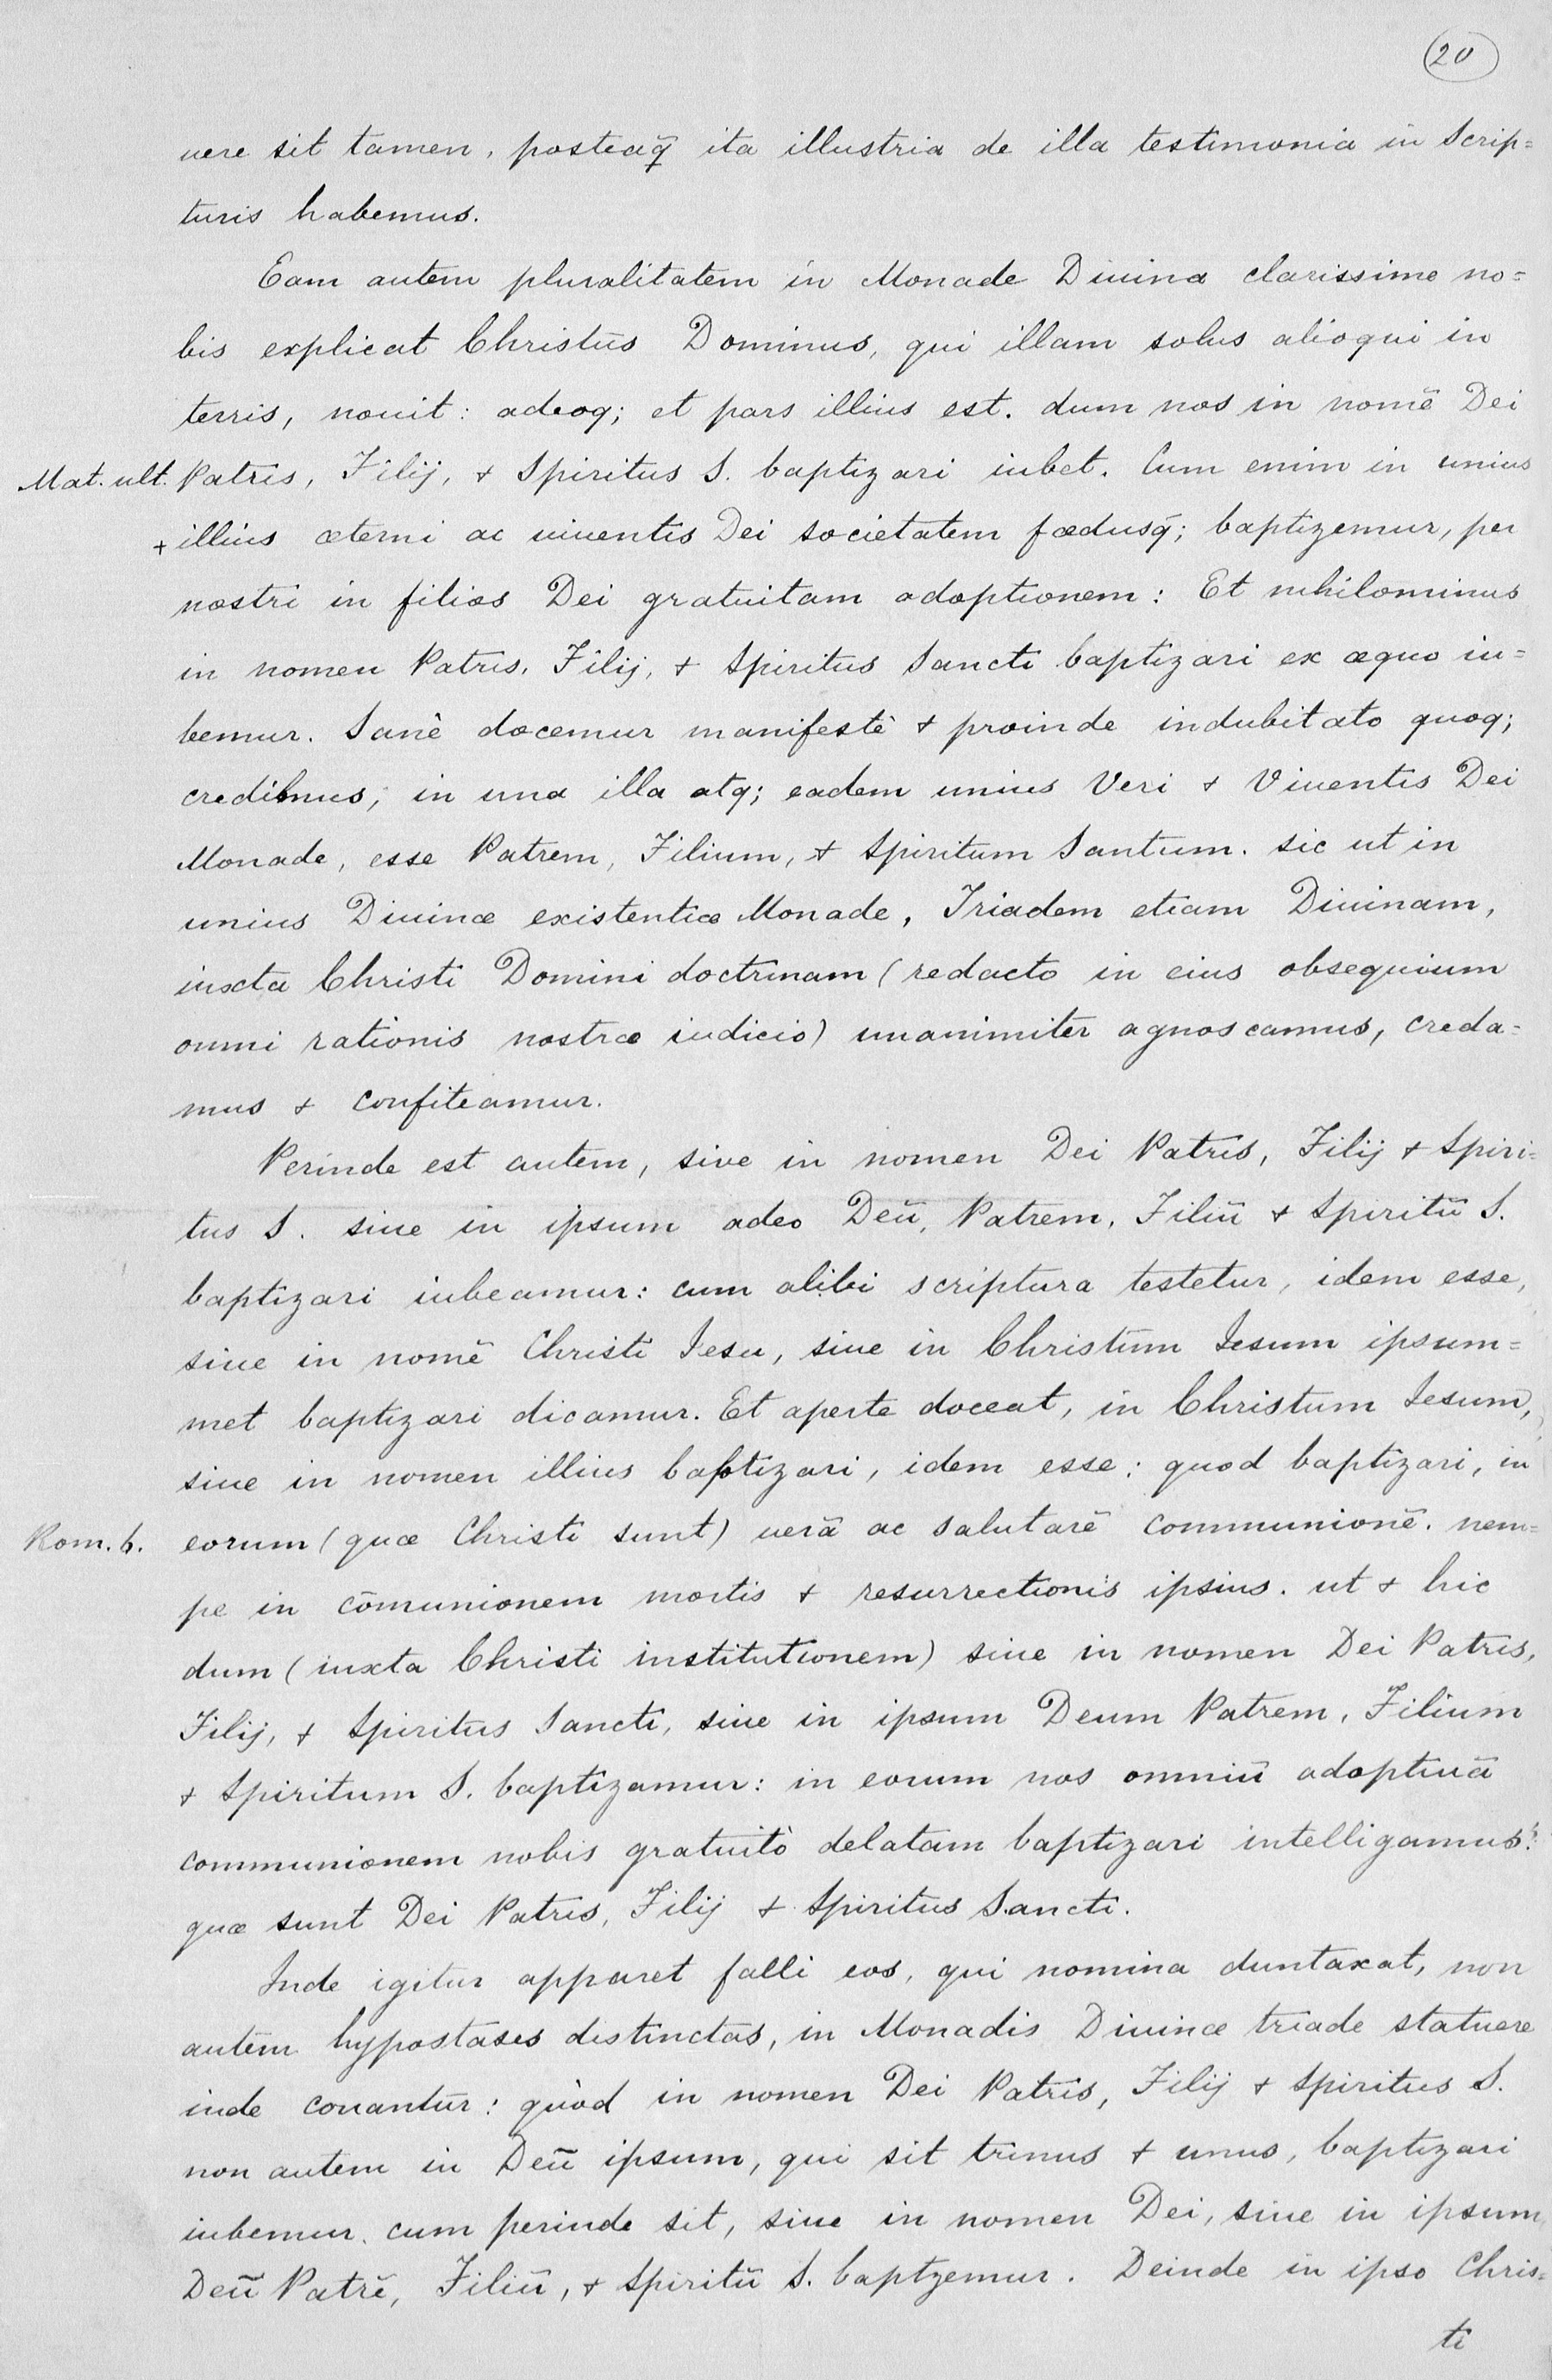 20
uere sit tamen, posteaq̃ ita illustria de illa testimonia in Scrip=
turis habemus.
Eam autem pluralitatem in Monade Diuina clarissime no=
bis explicat Christus Dominus, qui illam solus alioqui in
terris, nouit: adeoq; et pars illius est. dum nos in nomē Dei
Mat. ult. Patris, Filij, & Spiritus S. baptizari iubet. Cum enim in unius
+ illius æterni ac uiuentis Dei societatem fœdusq́; baptizemur, per
nostri in filios Dei gratuitam adoptionem: Et nihilominus
in nomen Patris, Filij, & Spiritus Sancti baptizari ex æquo iu=
bemur. Sanè docemur manifestè & proinde indubitato quoq;
credimus, in una illa atq; eadem unius Veri & Viuentis Dei
Monade, esse Patrem, Filium, & Spiritum Santum. sic ut in
unius Diuinæ existentiæ Monade, Triadem etiam Diuinam,
iuxta Christi Domini doctrinam (redacto in eius obsequium
omni rationis nostræ iudicio) unanimiter agnoscamus, creda=
mus & confiteamur.
Perinde est autem, sive in nomen Dei Patris, Filij & Spiri=
tus S. siue in ipsum adeo Deū, Patrem, Filiū & Spiritū S.
baptizari iubeamur: cum alibi scriptura testetur, idem esse,
siue in nomē Christi Iesu, siue in Christum Iesum ipsum=
met baptizari dicamur. Et aperte doceat, in Christum Iesum,
siue in nomen illius baptizari, idem esse; quod baptizari, in
Rom. 6. eorum (quæ Christi sunt) uerā ac salutarē communionē. nem=
pe in cōmunionem mortis & resurrectionis ipsius. ut & hic
dum (iuxta Christi institutionem) siue in nomen Dei Patris,
Filij, & Spiritus Sancti, siue in ipsum Deum Patrem, Filium
& Spiritum S. baptizamur: in eorum nos omniū adoptiuā
communionem nobis gratuitò delatam baptizari intelligamus:
quæ sunt Dei Patris, Filij & Spiritus Sancti.
Inde igitur apparet falli eos, qui nomina duntaxat, non
autem hypostases distinctas, in Monadis Diuinæ triade statuere
inde conantur: quòd in nomen Dei Patris, Filij & Spiritus S.
non autem in Deū ipsum, qui sit trinus & unus, baptizari
iubemur. cum perinde sit, siue in nomen Dei, siue in ipsum
Deū Patrē, Filiū, & Spiritū S. baptzemur. Deinde in ipso Chris=
ti